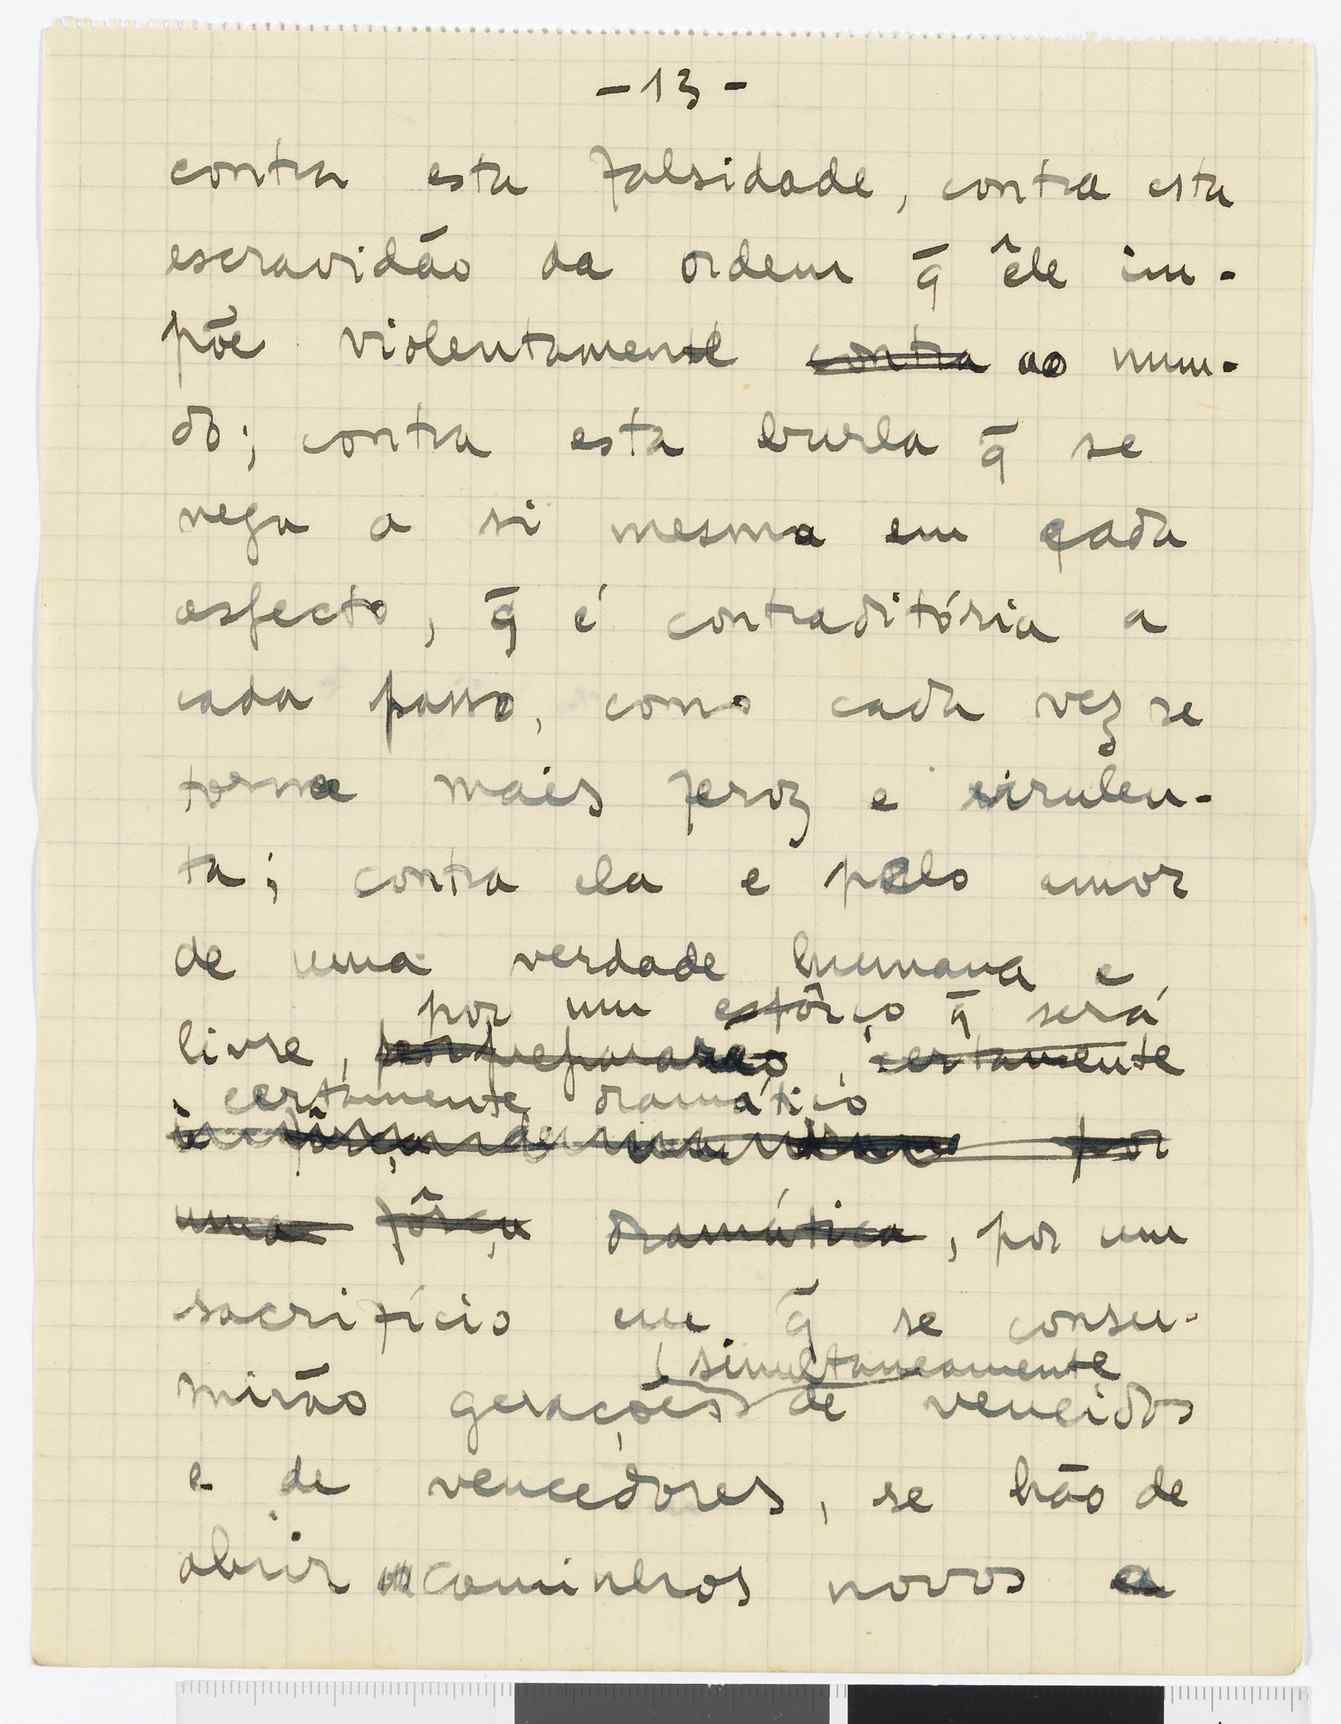 - 13 -
contra esta falsidade, contra esta
escravidão da ordem q̄ êle im-
põe violentamente contra ao mun-
do; contra esta burla q̄ se
nega a si mesma em cada
aspecto, q̄ é contraditória a
cada passo, como cada vez se
torna mais feroz e virulen-
ta; contra ela e pelo amor
de uma verdade humana e
por um esfôrço q̄ será
livre, certamente
certamente dramático
por
uma fôrça dramática, por um
sacrifício em q̄ se consu-
simultaneamente
mirão gerações de vencidos
e de vencedores, se hão de
abrir caminhos novos a